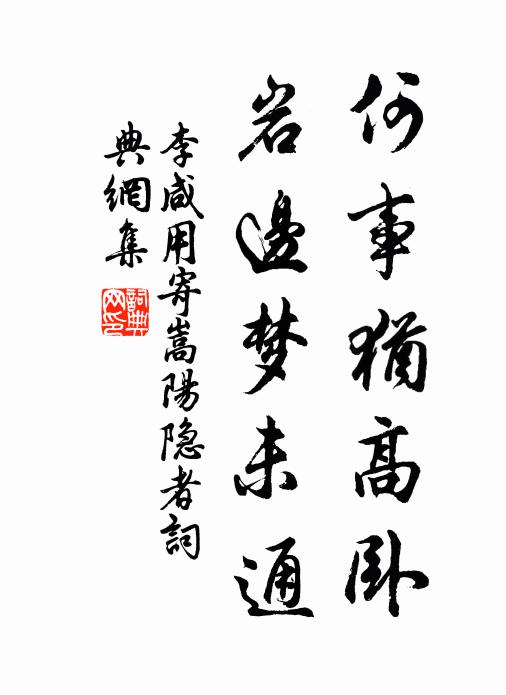 何事猶高卧
岩邊梦未通
李咸用寄嵩陽隐者詞
典網集
詞典网印